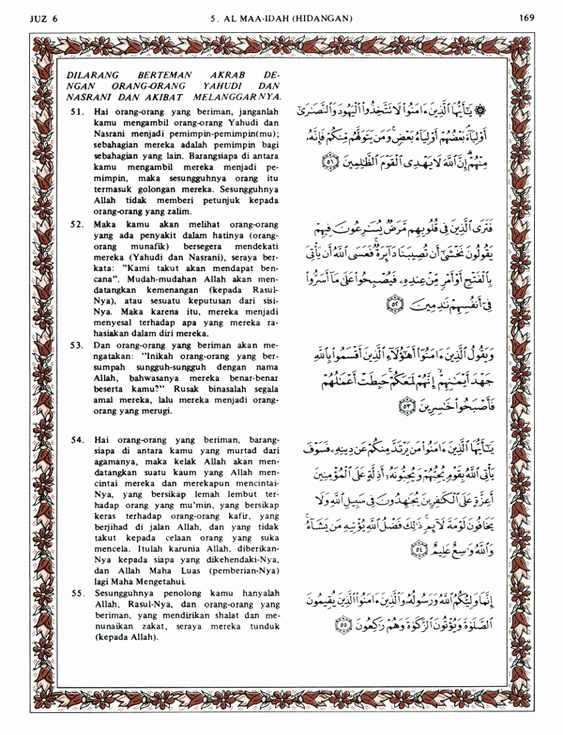 JUZ 6 5. AL MAA-IDAH (HIDANGAN) 169
DILARANG BERTEMAN AKRAB DE-
NGAN ORANG-ORANG YAHUDI DAN
NASRANI DAN AKIBAT MELANGGARNYA.
51. Hai orang-orang yang beriman, janganlah
kamu mengambil orang-orang Yahudi dan
Nasrani menjadi pemimpin-pemimpin(mu);
sebahagian mereka adalah pemimpin bagi
sebahagian yang lain. Barangsiapa di antara
kamu mengambil mereka menjadi pe-
mimpin, maka sesungguhnya orang itu
termasuk golongan mereka. Sesungguhnya
Allah tidak memberi petunjuk kepada
orang-orang yang zalim.
52. Maka kamu akan melihat orang-orang
yang ada penyakit dalam hatinya (orang-
orang munafik) bersegera mendekati
mereka (Yahudi dan Nasrani), seraya ber-
kata: "Kami takut akan mendapat ben-
cana". Mudah-mudahan Allah akan men-
datangkan kemenangan (kepada Rasul-
Nya), atau sesuatu keputusan dari sisi-
Nya. Maka karena itu, mereka menjadi
menyesal terhadap apa yang mereka ra-
hasiakan dalam diri mereka.
53. Dan orang-orang yang beriman akan me-
ngatakan: "Inikah orang-orang yang ber-
sumpah sungguh-sungguh dengan nama
Allah, bahwasanya mereka benar-benar
beserta kamu?" Rusak binasalah segala
amal mereka, lalu mereka menjadi orang-
orang yang merugi.
54. Hai orang-orang yang beriman, barang-
siapa di antara kamu yang murtad dari
agamanya, maka kelak Allah akan men-
datangkan suatu kaum yang Allah men-
cintai mereka dan merekapun mencintai-
Nya, yang bersikap lemah lembut ter-
hadap orang yang mu'min, yang bersikap
keras terhadap orang-orang kafir, yang
berjihad di jalan Allah, dan yang tidak
takut kepada celaan orang yang suka
mencela. Itulah karunia Allah, diberikan-
Nya kepada siapa yang dikehendaki-Nya,
dan Allah Maha Luas (pemberian-Nya)
lagi Maha Mengetahui.
55. Sesungguhnya penolong kamu hanyalah
Allah, Rasul-Nya, dan orang-orang yang
beriman, yang mendirikan shalat dan me-
nunaikan zakat, seraya mereka tunduk
(kepada Allah).
۞ يَٰٓأَيُّهَا ٱلَّذِينَ ءَامَنُوا۟ لَا تَتَّخِذُوا۟ ٱلْيَهُودَ وَٱلنَّصَٰرَىٰٓ
أَوْلِيَآءَ بَعْضُهُمْ أَوْلِيَآءُ بَعْضٍ وَمَن يَتَوَلَّهُم مِّنكُمْ فَإِنَّهُۥ
مِنْهُمْ إِنَّ ٱللَّهَ لَا يَهْدِى ٱلْقَوْمَ ٱلظَّٰلِمِينَ ٥١
فَتَرَى ٱلَّذِينَ فِى قُلُوبِهِم مَّرَضٌ يُسَٰرِعُونَ فِيهِمْ
يَقُولُونَ نَخْشَىٰٓ أَن تُصِيبَنَا دَآئِرَةٌ فَعَسَى ٱللَّهُ أَن يَأْتِىَ
بِٱلْفَتْحِ أَوْ أَمْرٍ مِّنْ عِندِهِۦ فَيُصْبِحُوا۟ عَلَىٰ مَآ أَسَرُّوا۟
فِىٓ أَنفُسِهِمْ نَٰدِمِينَ ٥٢
وَيَقُولُ ٱلَّذِينَ ءَامَنُوٓا۟ أَهَٰٓؤُلَآءِ ٱلَّذِينَ أَقْسَمُوا۟ بِٱللَّهِ
جَهْدَ أَيْمَٰنِهِمْ إِنَّهُمْ لَمَعَكُمْ حَبِطَتْ أَعْمَٰلُهُمْ
فَأَصْبَحُوا۟ خَٰسِرِينَ ٥٣
يَٰٓأَيُّهَا ٱلَّذِينَ ءَامَنُوا۟ مَن يَرْتَدَّ مِنكُمْ عَن دِينِهِۦ فَسَوْفَ
يَأْتِى ٱللَّهُ بِقَوْمٍ يُحِبُّهُمْ وَيُحِبُّونَهُۥٓ أَذِلَّةٍ عَلَى ٱلْمُؤْمِنِينَ
أَعِزَّةٍ عَلَى ٱلْكَٰفِرِينَ يُجَٰهِدُونَ فِى سَبِيلِ ٱللَّهِ وَلَا
يَخَافُونَ لَوْمَةَ لَآئِمٍ ذَٰلِكَ فَضْلُ ٱللَّهِ يُؤْتِيهِ مَن يَشَآءُ
وَٱللَّهُ وَٰسِعٌ عَلِيمٌ ٥٤
إِنَّمَا وَلِيُّكُمُ ٱللَّهُ وَرَسُولُهُۥ وَٱلَّذِينَ ءَامَنُوا۟ ٱلَّذِينَ يُقِيمُونَ
ٱلصَّلَوٰةَ وَيُؤْتُونَ ٱلزَّكَوٰةَ وَهُمْ رَٰكِعُونَ ٥٥